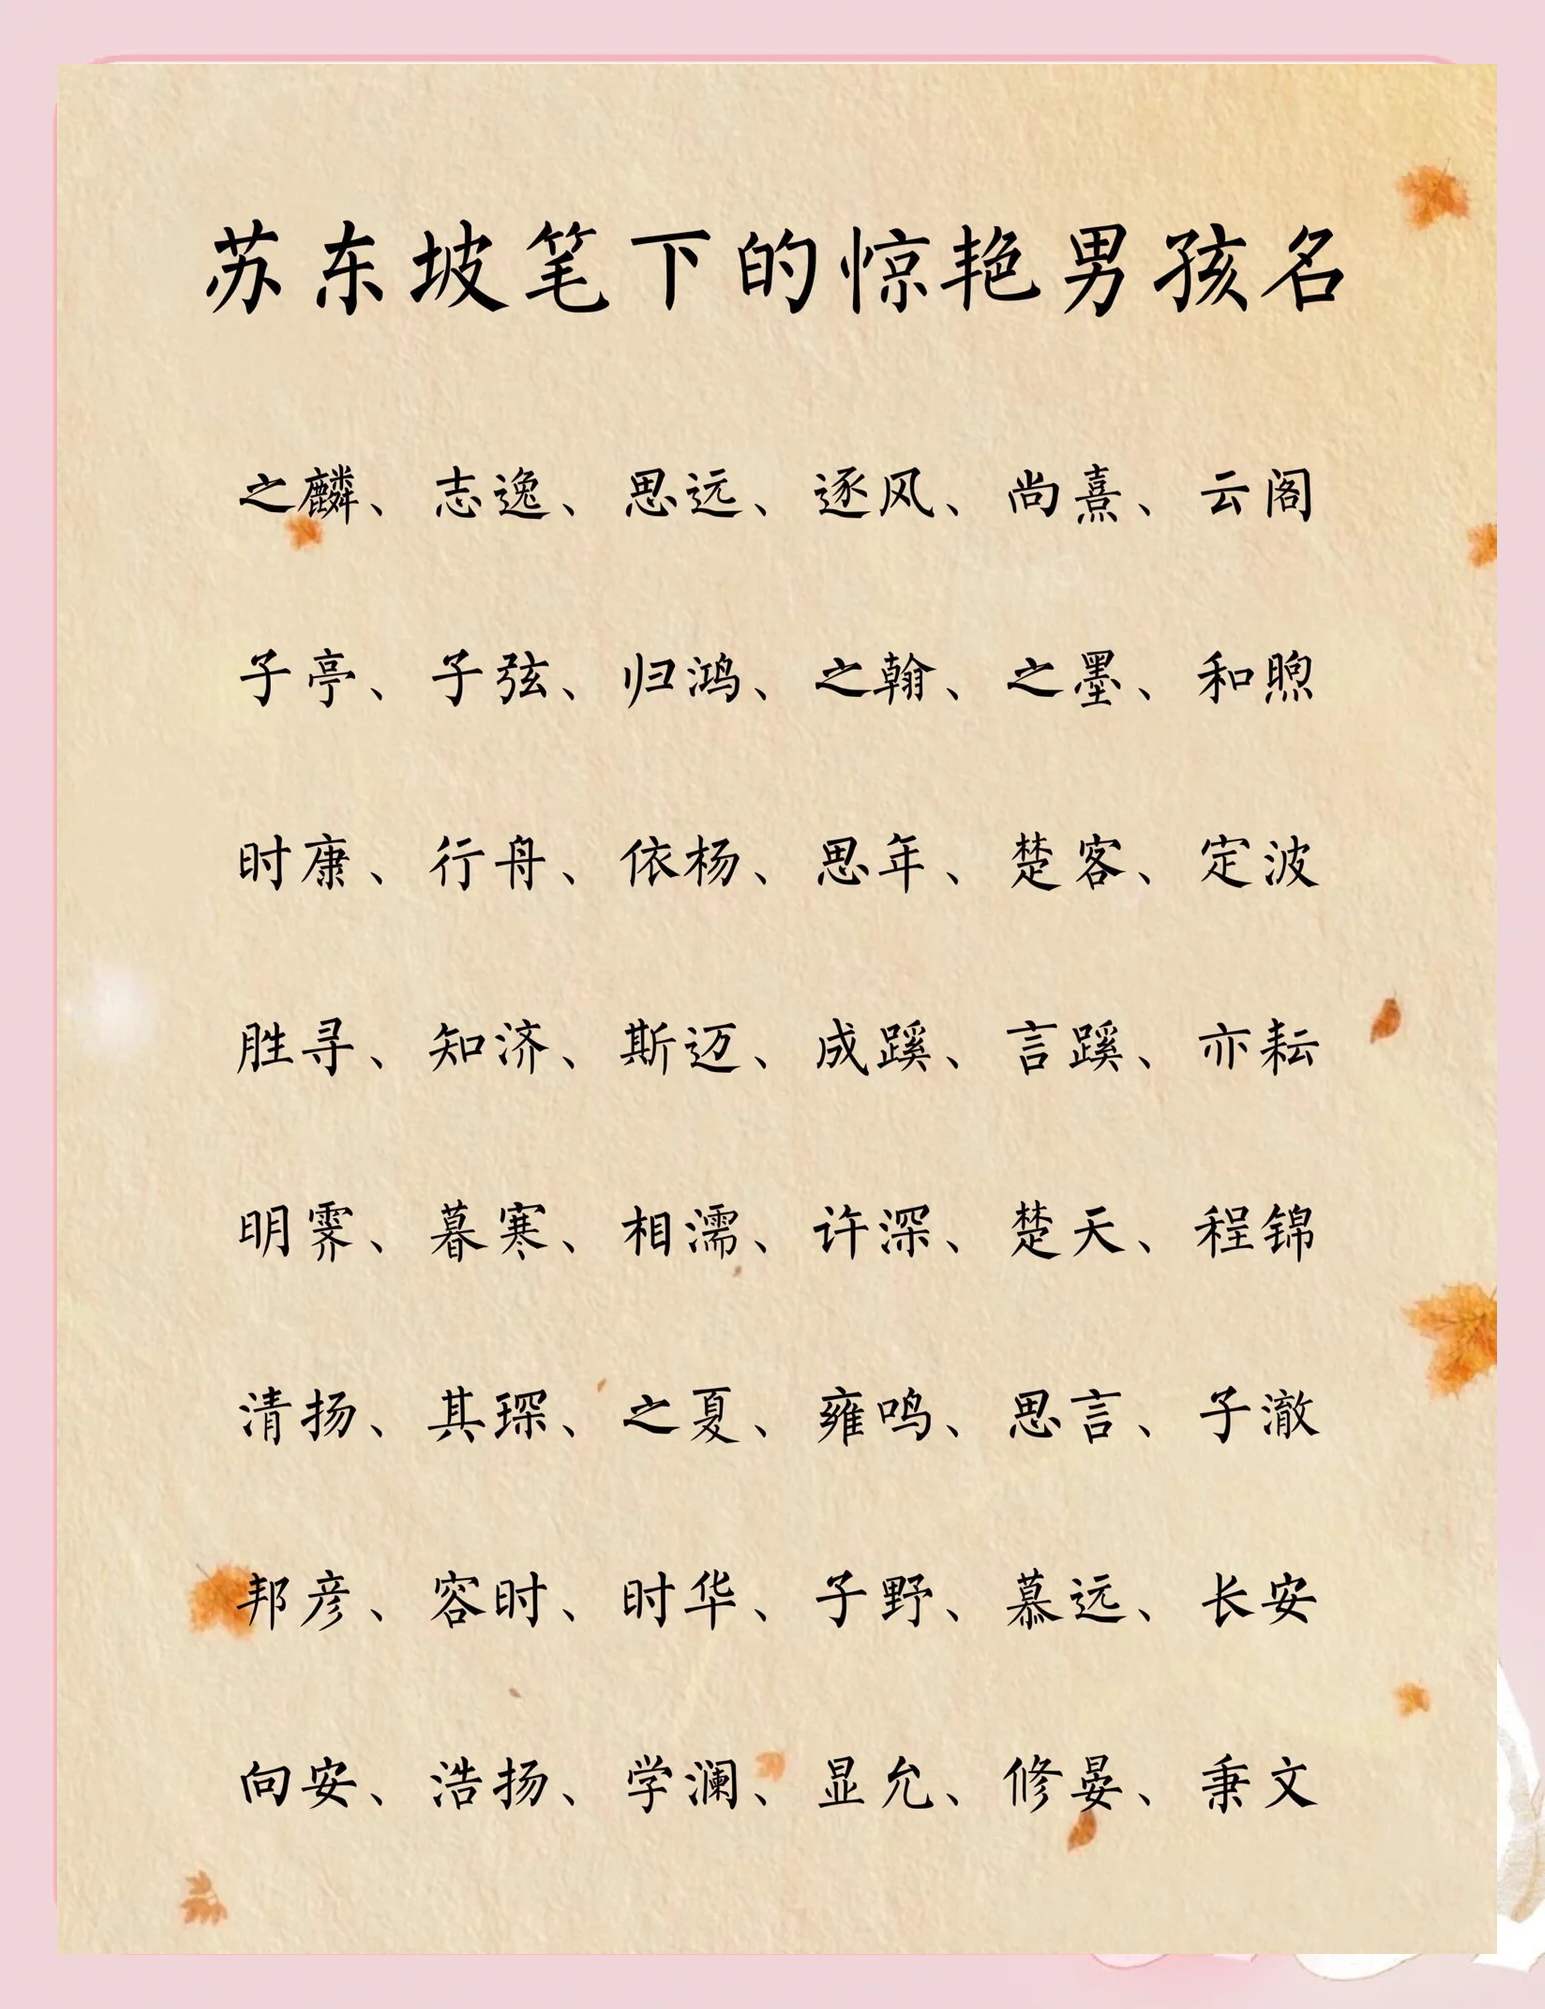 苏东坡笔下的惊艳男孩名
之麟、志逸、思远、逐风、尚熹、云阁
子亭、子弦、归鸿、之翰、之墨、和煦
时康、行舟、依杨、思年、楚客、定波
胜寻、知济、斯迈、成蹊、言蹊、亦耘
明霁、暮寒、相濡、许深、楚天、程锦
清扬、其琛、之夏、雍鸣、思言、子澈
邦彦、容时、时华、子野、慕远、长安
向安、浩扬、学澜、显允、修晏、秉文